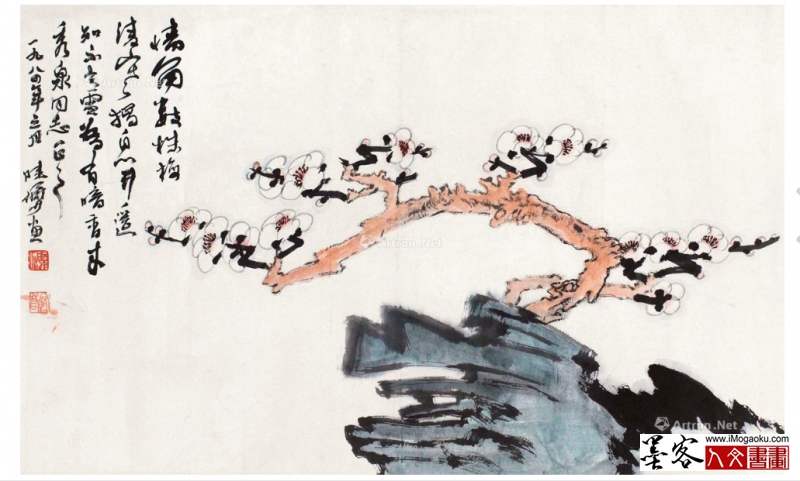 墻角數枝梅
凌寒獨自開遥
知不是雪為有暗香來
秀泉同志正之
一九八四年三月
Artron.Net
Artron.Net
墨客
www.iMogaoku.com
人文書畫